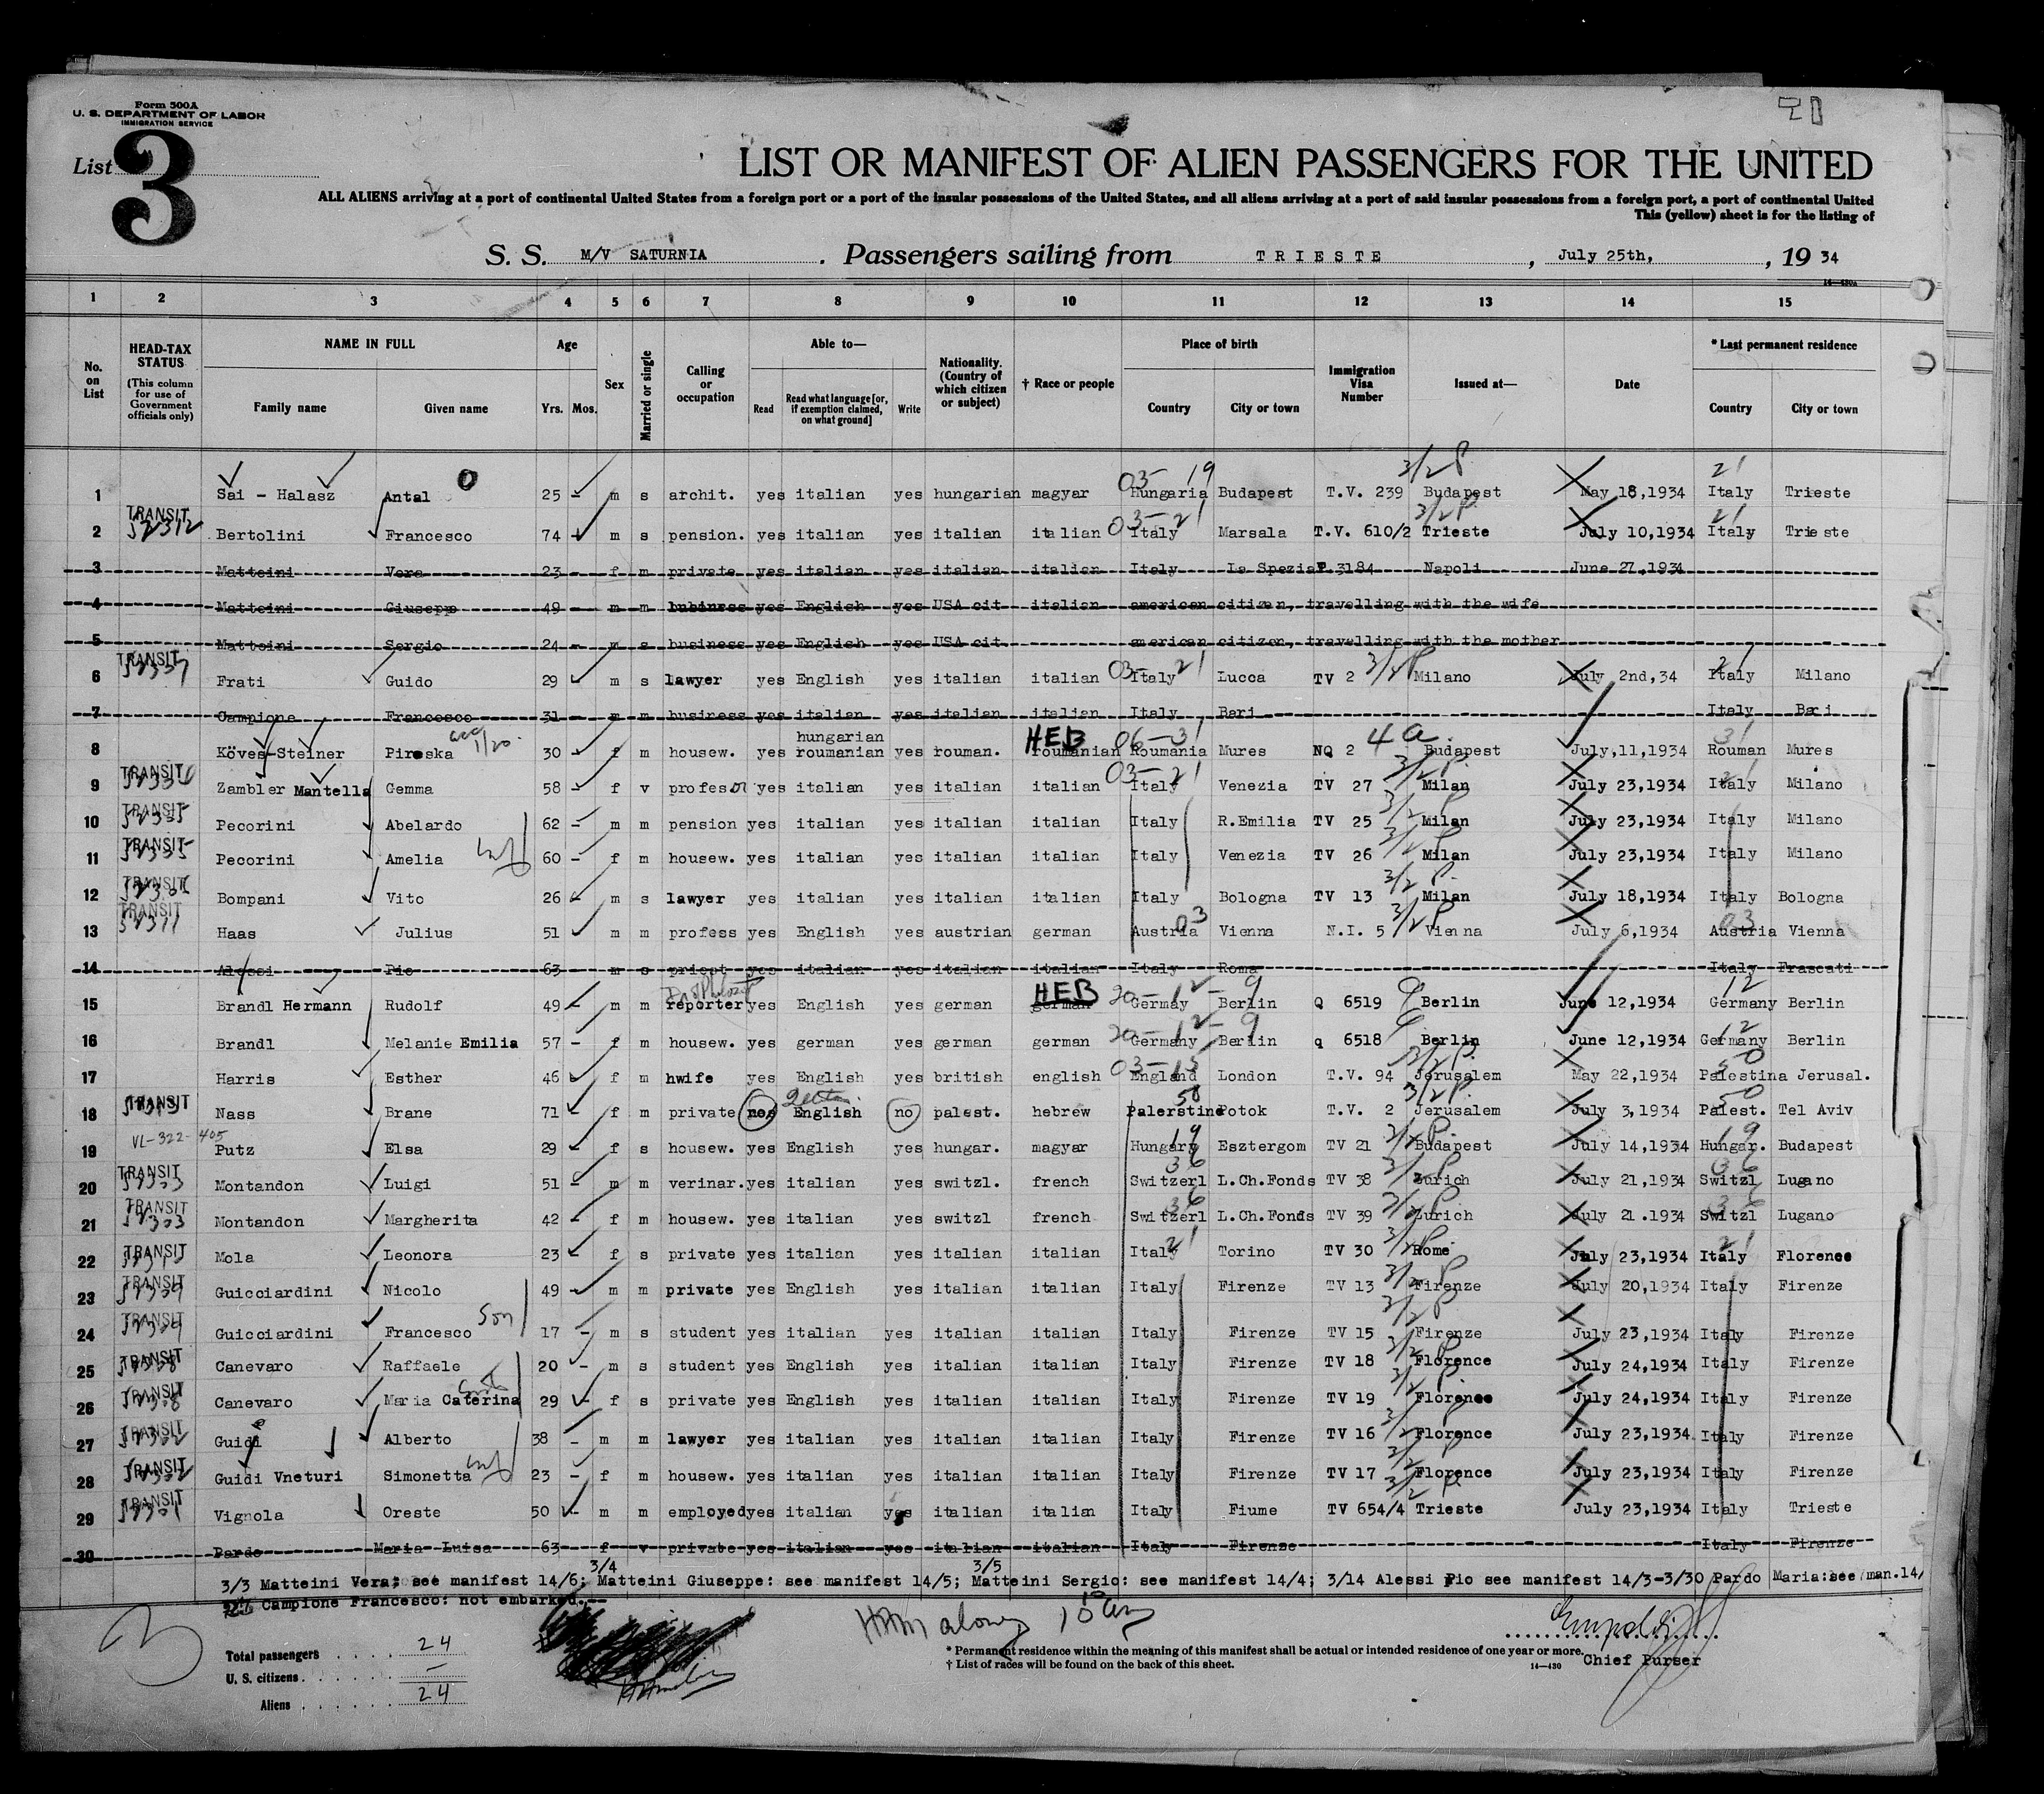 Form 500A
U. S. DEPARTMENT OF LABOR
IMMIGRATION SERVICE
List 3
LIST OR MANIFEST OF ALIEN PASSENGERS FOR THE UNITED
ALL ALIENS arriving at a port of continental United States from a foreign port or a port of the insular possessions of the United States, and all aliens arriving at a port of said insular possessions from a foreign port, a port of continental United
This (yellow) sheet is for the listing of
S. S. M/V SATURNIA . Passengers sailing from TRIESTE , July 25th, , 19 34
14—430A
1 2 3 4 5 6 7 8 9 10 11 12 13 14 15
No. on List
HEAD-TAX STATUS (This column for use of Government officials only)
NAME IN FULL Family name Given name
Age Yrs. Mos.
Sex
Married or single
Calling or occupation
Able to— Read Read what language [or, if exemption claimed, on what ground] Write
Nationality. (Country of which citizen or subject)
† Race or people
Place of birth Country City or town
Immigration Visa Number
Issued at—
Date
* Last permanent residence Country City or town
1 Sai - Halasz Antal 25 - m s archit. yes italian yes hungarian magyar 03 19 Hungaria Budapest T.V. 239 3/2 P Budapest May 18,1934 21 Italy Trieste
2 TRANSIT 52312 Bertolini Francesco 74 - m s pension. yes italian yes italian italian 03-21 Italy Marsala T.V. 610/2 3/2 P Trieste July 10,1934 21 Italy Trieste
3 Matteini Vera 23 - f m private yes italian yes italian italian Italy La Spezia P.3184 Napoli June 27,1934
4 Matteini Giuseppe 49 - m m business yes English yes USA cit italian american citizen, travelling with the wife
5 Matteini Sergio 24 - m s business yes English yes USA cit american citizen, travelling with the mother
6 TRANSIT Frati Guido 29 - m s lawyer yes English yes italian italian 03 21 Italy Lucca TV 2 3/2 P Milano July 2nd,34 21 Italy Milano
7 Campione Francesco 31 - m m business yes italian yes italian italian Italy Bari Italy Bari
8 Köves-Steiner Piroska 30 - f m housew. yes hungarian roumanian yes rouman. HEB roumanian 06-31 Roumania Mures NQ 2 4a. Budapest July,11,1934 31 Rouman Mures
9 TRANSIT Zambler Mantella Gemma 58 - f v profesor yes italian yes italian italian 03-21 Italy Venezia TV 27 3/2 P Milan July 23,1934 21 Italy Milano
10 TRANSIT Pecorini Abelardo 62 - m m pension yes italian yes italian italian Italy R.Emilia TV 25 3/2 P Milan July 23,1934 Italy Milano
11 TRANSIT Pecorini Amelia wf 60 - f m housew. yes italian yes italian italian Italy Venezia TV 26 3/2 P Milan July 23,1934 Italy Milano
12 TRANSIT Bompani Vito 26 - m s lawyer yes italian yes italian italian Italy Bologna TV 13 3/2 P. Milan July 18,1934 Italy Bologna
13 TRANSIT 52311 Haas Julius 51 m m profess yes English yes austrian german 03 Austria Vienna N.I. 5 3/2 P Vienna July 6,1934 03 Austria Vienna
14 Alessi Pio 63 - m s priest yes italian yes italian italian Italy Roma Italy Frascati
15 Brandl Hermann Rudolf 49 - m m reporter yes English yes german HEB german 20-12-9 Germay Berlin Q 6519 Berlin June 12,1934 12 Germany Berlin
16 Brandl Melanie Emilia 57 - f m housew. yes german yes german german 20-12-9 Germany Berlin q 6518 Berlin June 12,1934 12 Germany Berlin
17 Harris Esther 46 - f m hwife yes English yes british english 03-15 England London T.V. 94 3/2 P. Jerusalem May 22,1934 50 Palestina Jerusal.
18 TRANSIT Nass Brane 71 - f m private English no palest. hebrew 50 Palerstine Potok T.V. 2 3/2 P Jerusalem July 3,1934 50 Palest. Tel Aviv
19 VL-322-405 Putz Elsa 29 - f s housew. yes English yes hungar. magyar 19 Hungary Esztergom TV 21 3/2 P. Budapest July 14,1934 19 Hungar. Budapest
20 TRANSIT 52303 Montandon Luigi 51 - m m verinar. yes italian yes switzl. french 36 Switzerl L.Ch.Fonds TV 38 3/2 P Zurich July 21,1934 36 Switzl Lugano
21 TRANSIT 52303 Montandon Margherita 42 - f m housew. yes italian yes switzl french 36 Switzerl L.Ch.Fonds TV 39 3/2 P Zurich July 21.1934 36 Switzl Lugano
22 TRANSIT Mola Leonora 23 - f s private yes italian yes italian italian 21 Italy Torino TV 30 3/2 P Rome July 23,1934 21 Italy Florence
23 TRANSIT 52309 Guicciardini Nicolo 49 - m m private yes English yes italian italian Italy Firenze TV 13 3/2 P Firenze July 20,1934 Italy Firenze
24 TRANSIT 52309 Guicciardini Francesco Son 17 - m s student yes italian yes italian italian Italy Firenze TV 15 3/2 P Firenze July 23,1934 Italy Firenze
25 TRANSIT 52308 Canevaro Raffaele 20 - m s student yes English yes italian italian Italy Firenze TV 18 3/2 P Florence July 24,1934 Italy Firenze
26 TRANSIT 52308 Canevaro Maria Caterina 29 - f s private yes English yes italian italian Italy Firenze TV 19 3/2 P Florence July 24,1934 Italy Firenze
27 TRANSIT 52302 Guidi Alberto 38 - m m lawyer yes italian yes italian italian Italy Firenze TV 16 3/2 P Florence July 23,1934 Italy Firenze
28 TRANSIT 52302 Guidi Vneturi Simonetta wf 23 - f m housew. yes italian yes italian italian Italy Firenze TV 17 3/2 P Florence July 23,1934 Italy Firenze
29 TRANSIT 52301 Vignola Oreste 50 - m m employed yes italian yes italian italian Italy Fiume TV 654/4 3/2 P. Trieste July 23,1934 Italy Trieste
30 Pardo Maria Luisa 63 - f v private yes italian yes italian italian Italy Firenze Italy Firenze
3/4 3/5
3/3 Matteini Vera: see manifest 14/6; Matteini Giuseppe: see manifest 14/5; Matteini Sergio: see manifest 14/4; 3/14 Alessi Pio see manifest 14/3-3/30 Pardo Maria:see man.14/
Campione Francesco: not embarked.--
Total passengers . . . . 24
U. S. citizens . . . . . —
Aliens . . . . . . 24
* Permanent residence within the meaning of this manifest shall be actual or intended residence of one year or more.
† List of races will be found on the back of this sheet.
14—430
Chief Purser